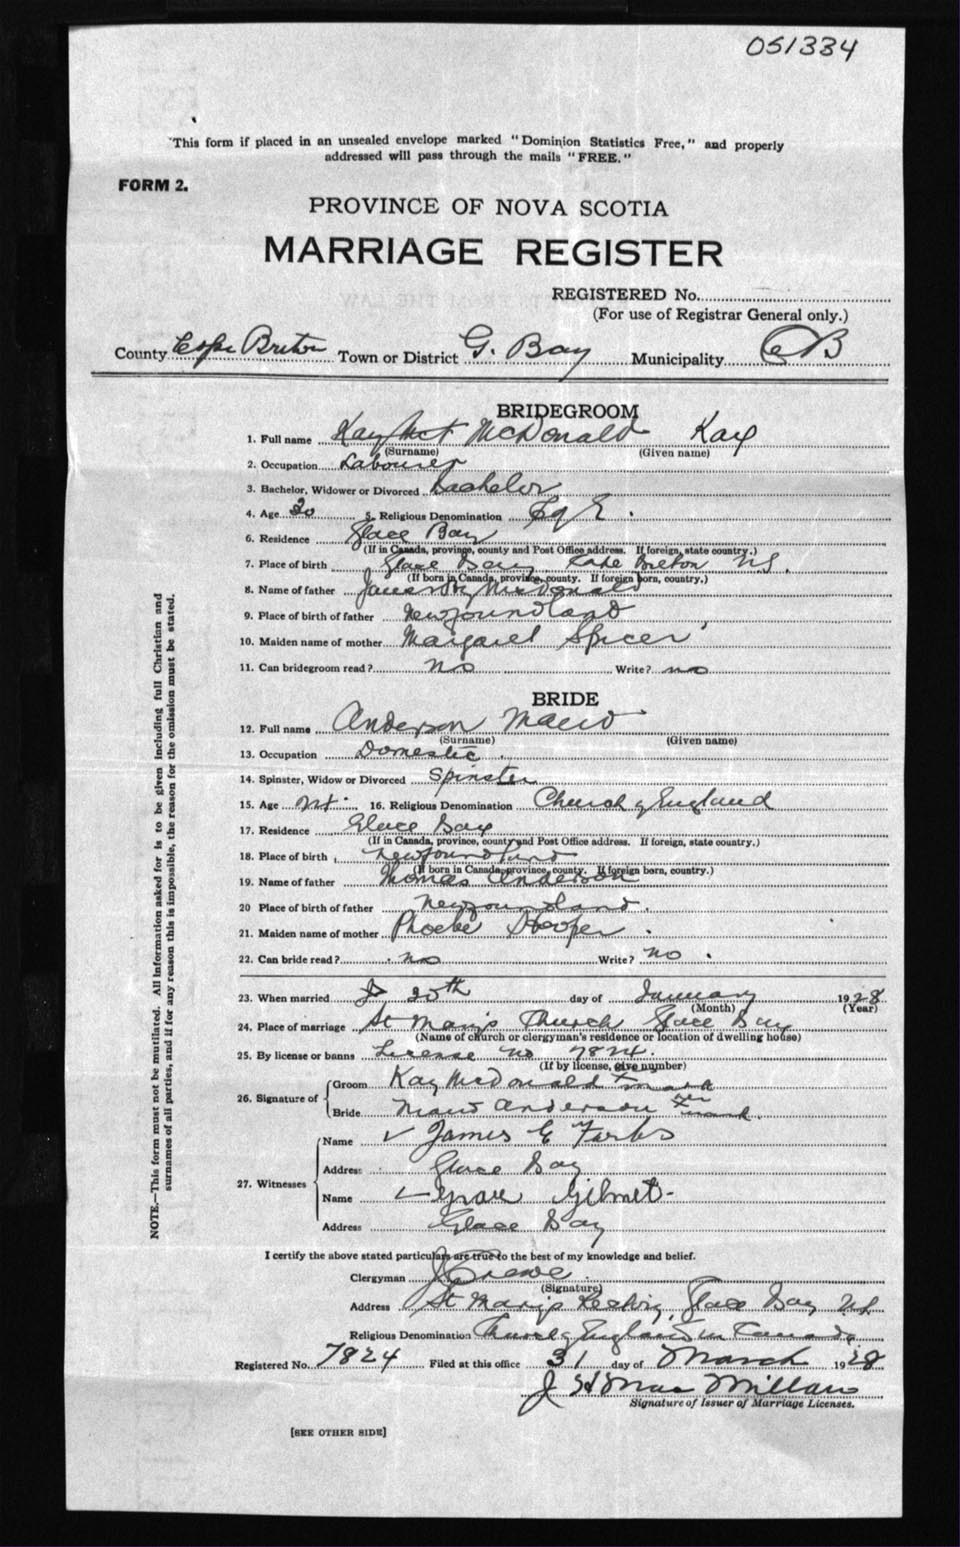 051334
"This form if placed in an unsealed envelope marked "Dominion Statistics Free," and properly
addressed will pass through the mails "FREE."
FORM 2.
PROVINCE OF NOVA SCOTIA
MARRIAGE REGISTER
REGISTERED No.
(For use of Registrar General only.)
County Cape Breton Town or District G. Bay Municipality CB
BRIDEGROOM
1. Full name Kay McDonald Kay
(Surname) (Given name)
2. Occupation Labourer
3. Bachelor, Widower or Divorced Bachelor
4. Age 20 5. Religious Denomination E
6. Residence Glace Bay
(If in Canada, province, county and Post Office address. If foreign, state country.)
7. Place of birth Glace Bay, Cape Breton N.S.
(If born in Canada, province, county. If foreign born, country.)
8. Name of father James McDonald
9. Place of birth of father Newfoundland
10. Maiden name of mother Margaret Spicer
11. Can bridegroom read? no Write? no
BRIDE
12. Full name Anderson Maud
(Surname) (Given name)
13. Occupation Domestic
14. Spinster, Widow or Divorced Spinster
15. Age 16. Religious Denomination Church of England
17. Residence Glace Bay
(If in Canada, province, county and Post Office address. If foreign, state country.)
18. Place of birth Newfoundland
(If born in Canada, province, county. If foreign born, country.)
19. Name of father Thomas Anderson
20 Place of birth of father Newfoundland.
21. Maiden name of mother Phoebe Hooper
22. Can bride read? no Write? no
23. When married 20th day of January 1928
(Month) (Year)
24. Place of marriage St Mary's Church Glace Bay
(Name of church or clergyman's residence or location of dwelling house)
25. By license or banns License no 7824.
(If by license, give number)
26. Signature of
Groom Kay McDonald x mark
Bride Maud Anderson her x mark.
27. Witnesses
Name James E Furbs
Address Glace Bay
Name Grace Gilmet
Address Glace Bay
I certify the above stated particulars are true to the best of my knowledge and belief.
Clergyman
(Signature)
Address St Mary's Rectory, Glace Bay N.S.
Religious Denomination Church of England in Canada
Registered No. 7824 Filed at this office 31 day of March 1928
J H MacMillan
Signature of Issuer of Marriage Licenses.
[SEE OTHER SIDE]
NOTE.—This form must not be mutilated. All information asked for is to be given including full Christian and
surnames of all parties, and if for any reason this is impossible, the reason for the omission must be stated.